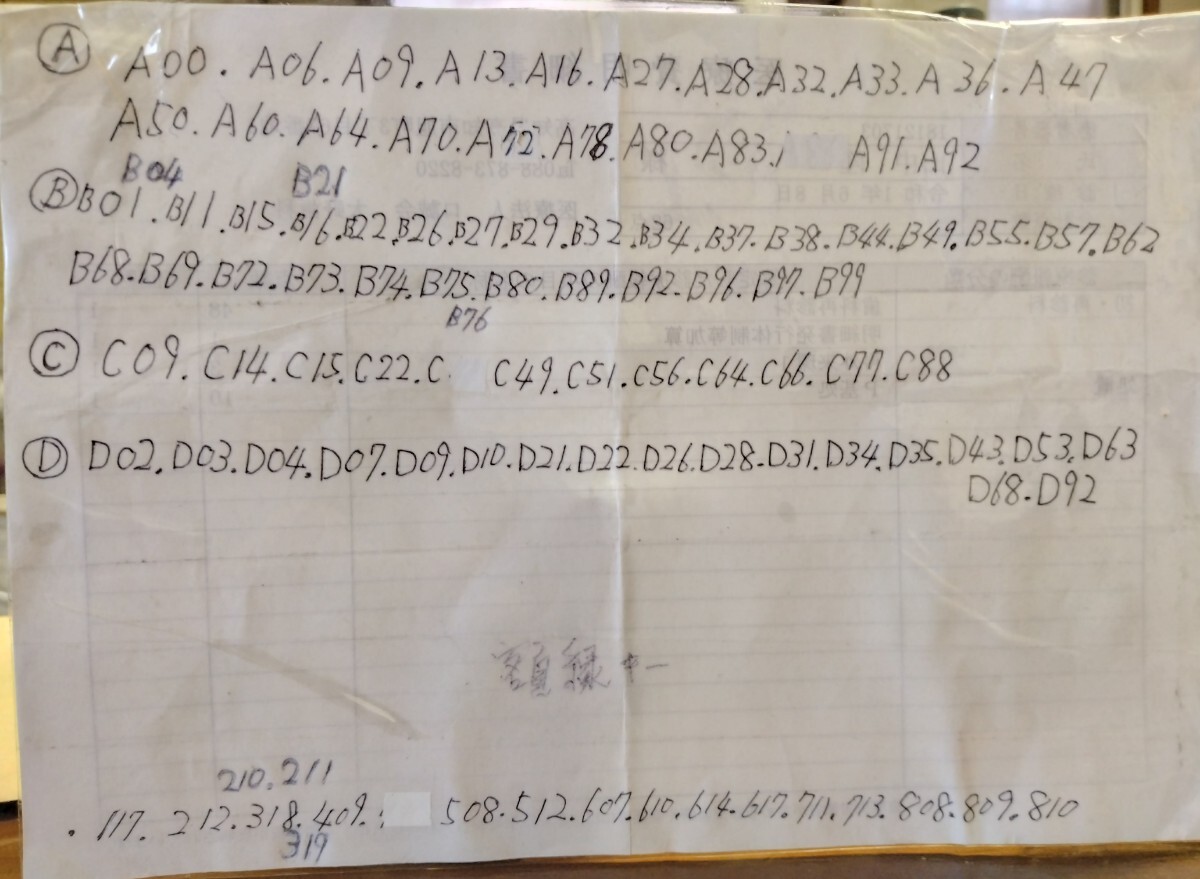 Ⓐ A00. A06. A09. A13. A16. A27. A28. A32. A33. A36. A47
A50. A60. A64. A70. A72. A78. A80. A83. A91. A92
B04 B21
Ⓑ B01. B11. B15. B16. B22. B26. B27. B29. B32. B34. B37. B38. B44. B49. B55. B57. B62
B68. B69. B72. B73. B74. B75. B80. B89. B92. B96. B97. B99
B76
Ⓒ C09. C14. C15. C22. C C49. C51. C56. C64. C66. C77. C88
Ⓓ D02. D03. D04. D07. D09. D10. D21. D22. D26. D28. D31. D34. D35. D43. D53. D63
D68. D92
額縁
210. 211
. 117. 212. 318. 409. 508. 512. 607. 610. 614. 617. 711. 713. 808. 809. 810
319